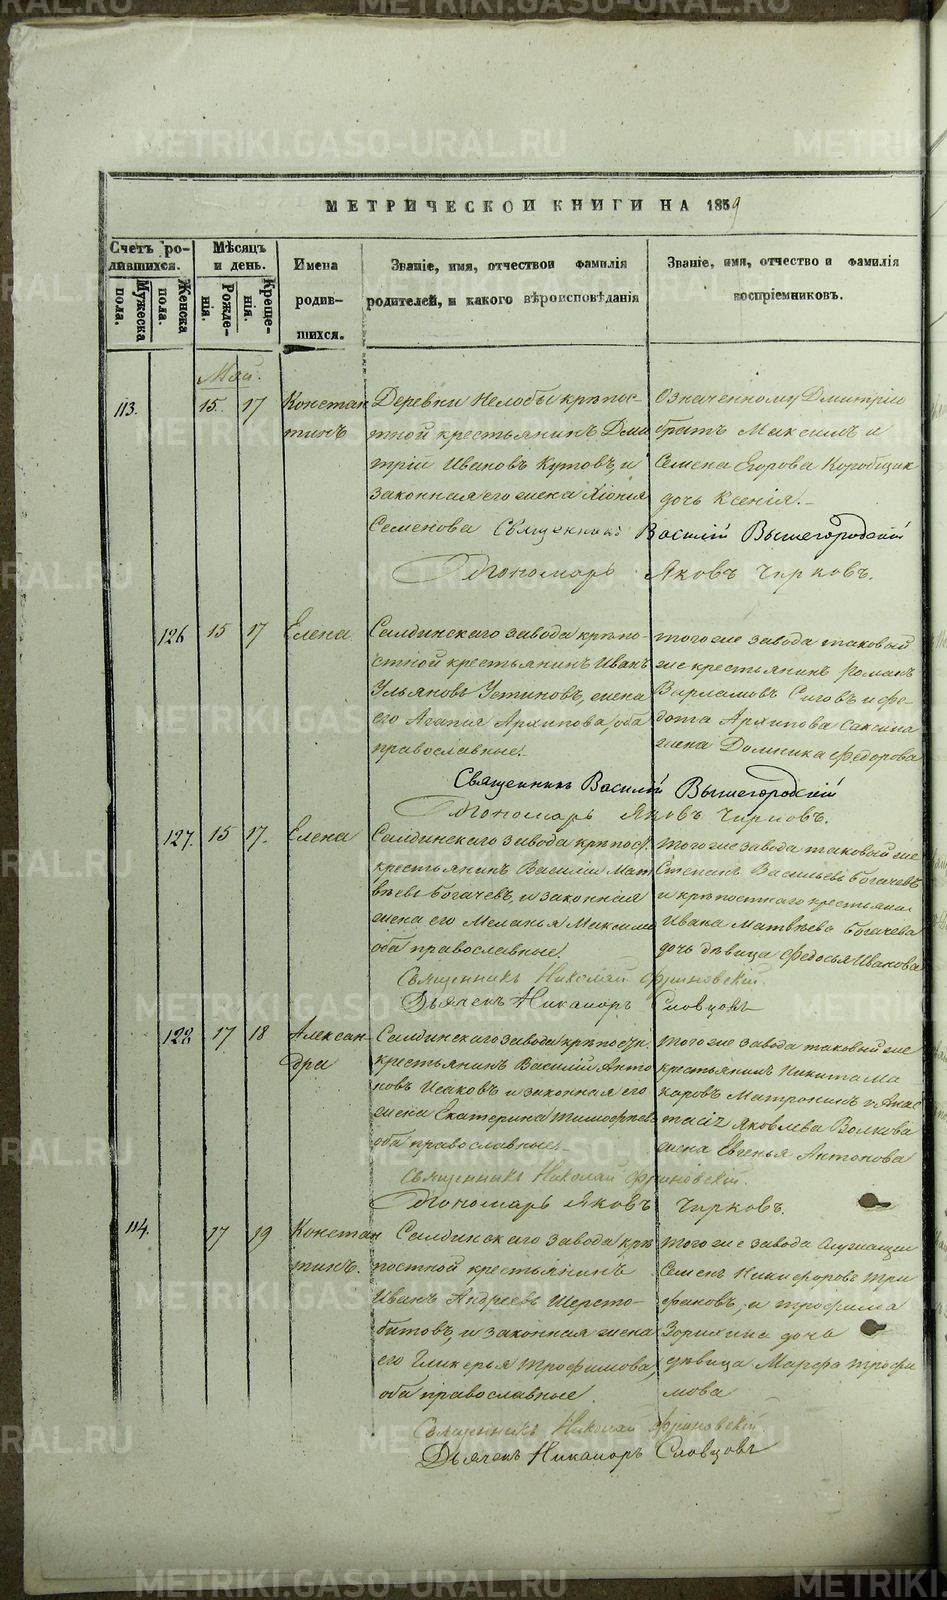 МЕТРИЧЕСКОЙ КНИГИ НА 1859
Счетъ родившихся.
Мужеска пола.
Женска пола.
Мѣсяцъ и день.
Рожденія.
Крещенія.
Имена родившихся.
Званіе, имя, отчествои фамилія родителей, и какого вѣроисповѣданія
Званіе, имя, отчество и фамилія воспріемниковъ.
Май.
113. 15. 17 Константинъ
Деревни Нелобы крѣпос-
тной крестьянинъ Дми
трій Ивановъ Кутовъ, и
законная его жена Хіонія
Семенова
Означенному Дмитрію
братъ Максимъ и
Семена Егорова Коробщик
дочь Ксенія.
Священникъ Василій Вышегородскій
Пономарь Яковъ Чирковъ.
126 15 17 Елена
Салдинскаго завода крѣпо-
стной крестьянинъ Иванъ
Ульяновъ Устиновъ, жена
его Агапія Архипова, оба
православные.
того же завода таковый
же крестьянинъ Романъ
Варламовъ Сиговъ и Фе-
дота Архипова Саксина
жена Домника Федорова
Священникъ Василій Вышегородскій
Пономарь Яковъ Чирковъ.
127. 15 17. Елена
Салдинскаго завода крѣпост.
крестьянинъ Василій Мат
вѣевъ Богачевъ, и законная
жена его Меланья Максима
оба православные.
того же завода таковый же
Степанъ Васильевъ Богачевъ
и крѣпостнаго крестьяни
Ивана Матвѣева Богачева
дочь дѣвица Федосья Иванова
Священникъ Николай Фриновскій.
Дьячекъ Никаноръ Словцовъ
128 17 18 Александра
Салдинскаго завода крѣпостн.
крестьянинъ Василій Анто
новъ Исаковъ и законная его
жена Екатерина Тимофѣев
оба православные.
того же завода таковый же
крестьянинъ Никита Ма
каровъ Матронинъ и Анас
тасіи Яковлева Волкова
жена Евгенья Антонова
Священникъ Николай Фриновскій.
Пономарь Яковъ Чирковъ.
114. 17 19 Константинъ.
Салдинскаго завода крѣ
постной крестьянинъ
Иванъ Андреевъ Шерсто-
битовъ, и законная жена
его Гликерья Трофимова,
оба православные.
того же завода служащи
Семенъ Никифоровъ Три
фановъ, и Трофима
Зорихина дочь
дѣвица Марфа Трофи
мова
Священникъ Николай Фриновскій
Дьячекъ Никаноръ Словцовъ
METRIKI.GASO-URAL.RU